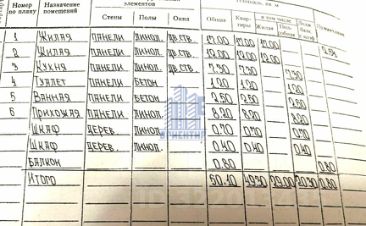 Номер по плану Назначение помещений Стены Полы Окна Общая Квартиры Жилая
1 Жилая панели линол. дв.ств. 17.00 17.00 17.00
2 Жилая панели линол. дв.ств. 12.00 12.00 12.00
3 Кухня панели линол. дв.ств. 7.30 7.30 7.30
4 Туалет панели бетон 1.20 1.20 1.20
5 Ванная панели бетон 2.50 2.50 2.50
6 Прихожая панели линол. 8.20 8.20 8.20
Шкаф дерев. линол. 0.70 0.70 0.70
Шкаф дерев. линол. 0.40 0.40 0.40
Балкон 0.80 0.80
Итого 50.10 49.30 29.00 20.30 0.80